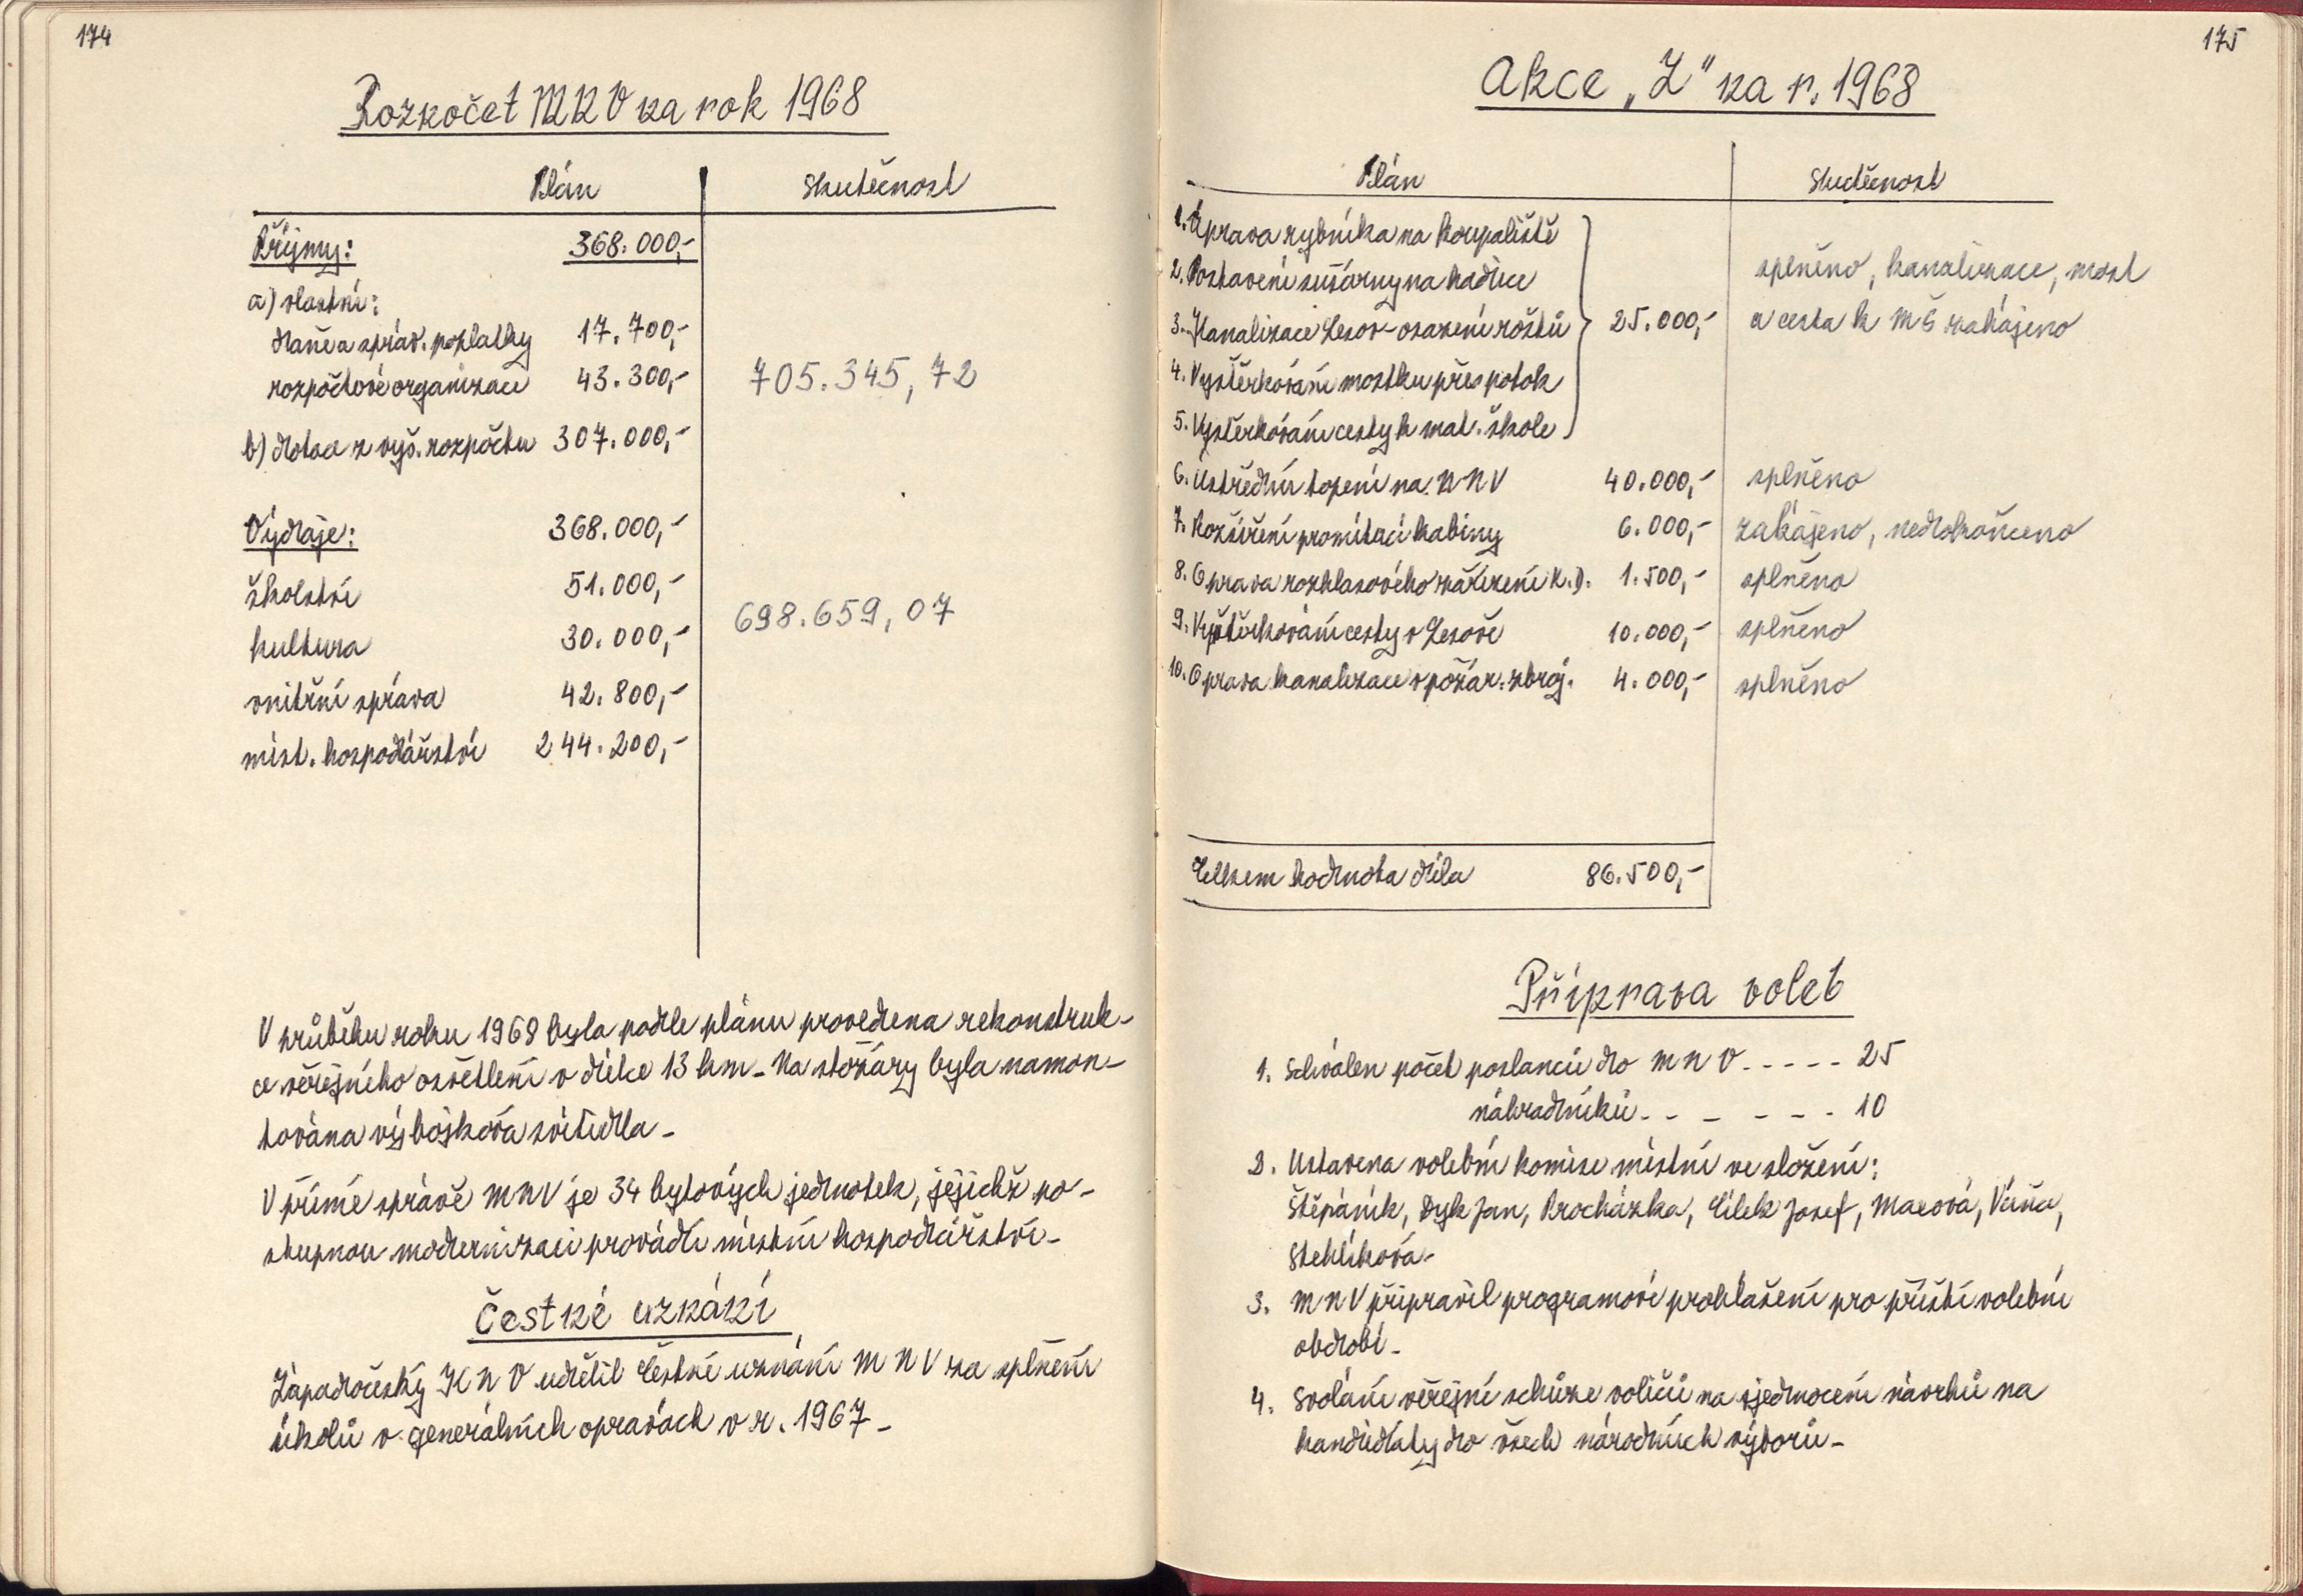 174
Rozpočet MNV na rok 1968
Plán skutečnost
Příjmy: 368.000,-
a) vlastní:
daně a správ. poplatky 17.700,-
rozpočtové organizace 43.300,- 705.345,72
b) dotace z vyš. rozpočtu 307.000,-
Výdaje: 368.000,-
školství 51.000,-
kultura 30.000,- 698.659,07
vnitřní správa 42.800,-
míst. hospodářství 244.200,-
V průběhu roku 1968 byla podle plánu provedena rekonstruk-
ce veřejného osvětlení v délce 13 km. Na stožáry byla namon-
tována výbojková svítidla.
V přímé správě MNV je 34 bytových jednotek, jejichž po-
stupnou modernizaci provádí místní hospodářství.
Čestné uznání
Západočeský KNV udělil čestné uznání MNV za splnění
úkolů v generálních opravách v r. 1967.
175
Akce „Z" na r. 1968
Plán skutečnost
1. Úprava rybníka na koupaliště
2. Postavení sušárny na hadice splněno, kanalizace, most
3. Kanalizace Lesov - osazení roštů 25.000,- a cesta k MŠ zahájeno
4. Vyštěrkování mostku přes potok
5. Vyštěrkování cesty k mat. škole
6. Ústřední topení na MNV 40.000,- splněno
7. Rozšíření promítací kabiny 6.000,- zahájeno, nedokončeno
8. Oprava rozhlasového zařízení K.D. 1.500,- splněno
9. Vyštěrkování cesty v Lesově 10.000,- splněno
10. Oprava kanalizace v požár. zbroj. 4.000,- splněno
Celkem hodnota díla 86.500,-
Příprava voleb
1. Schválen počet poslanců do MNV ----- 25
náhradníků ------ 10
2. Ustavena volební komise místní ve složení:
Štěpáník, Dyk Jan, Procházka, Cílek Josef, Macová, Váňa,
Stehlíková.
3. MNV připravil programové prohlášení pro příští volební
období.
4. Svolání veřejné schůze voličů na sjednocení návrhů na
kandidáty do všech národních výborů.